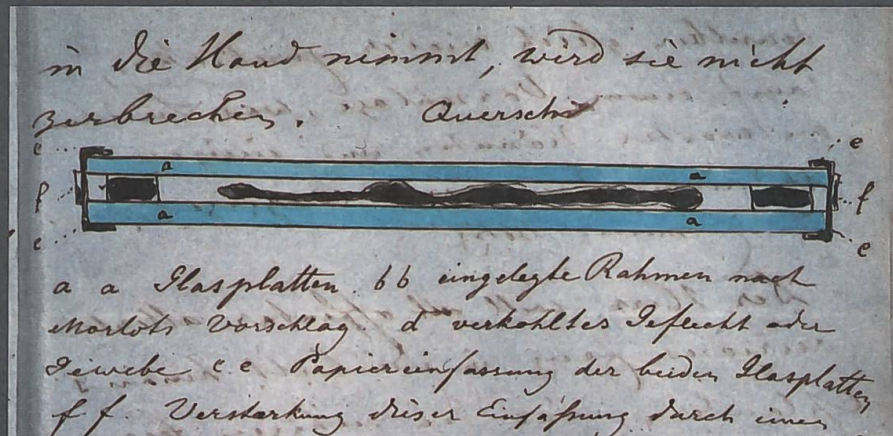 in die Hand nimmt, wird sie nicht
zerbrechen. Querschn
e e
a a
f f
a a
e e
a a Glasplatten. b b eingelegte Rahmen nach
Morlots Vorschlag. d verkohltes Geflecht oder
Gewebe e e Papiereinfassung der beiden Glasplatten
f f. Verstärkung dieser Einfassung durch einen